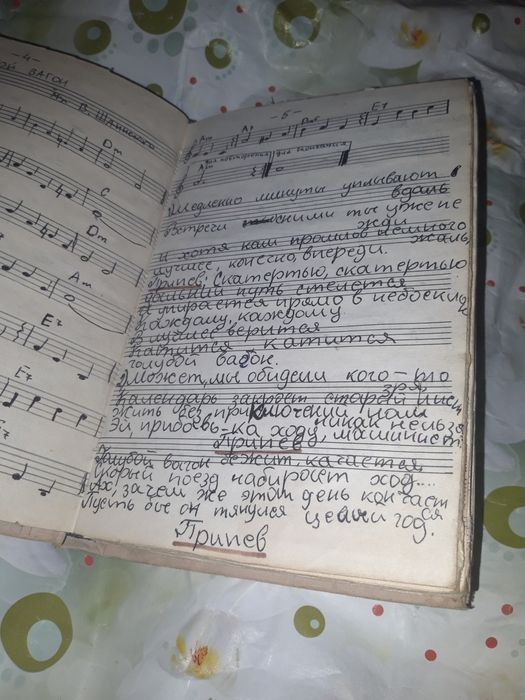 -4-
ОЙ ВАГОН
Муз. В. Шаинского
Dm
C
Dm
Am
E7
E7
-5-
Am
A7
Dm
E7
Am
для повторения
для окончания
1. Медленно минуты уплывают в
вдаль
Встречи с ними ты уже не
жди
И хотя нам прошлое немного
жаль,
Лучшее, конечно, впереди.
Припев: Скатертью, скатертью
дальний путь стелется
И упирается прямо в небосклон
Каждому, каждому
В лучшее верится
Катится катится
голубой вагон.
2. Может, мы обидели кого-то
зря
Календарь закроет старый лист
жить без приключений нам
никак нельзя
Эй, прибавь-ка ходу, машинист
Припев
Голубой вагон бежит, качается
скорый поезд набирает ход....
Ах, зачем же этот день кончает
ся
Пусть бы он тянулся целый год.
Припев